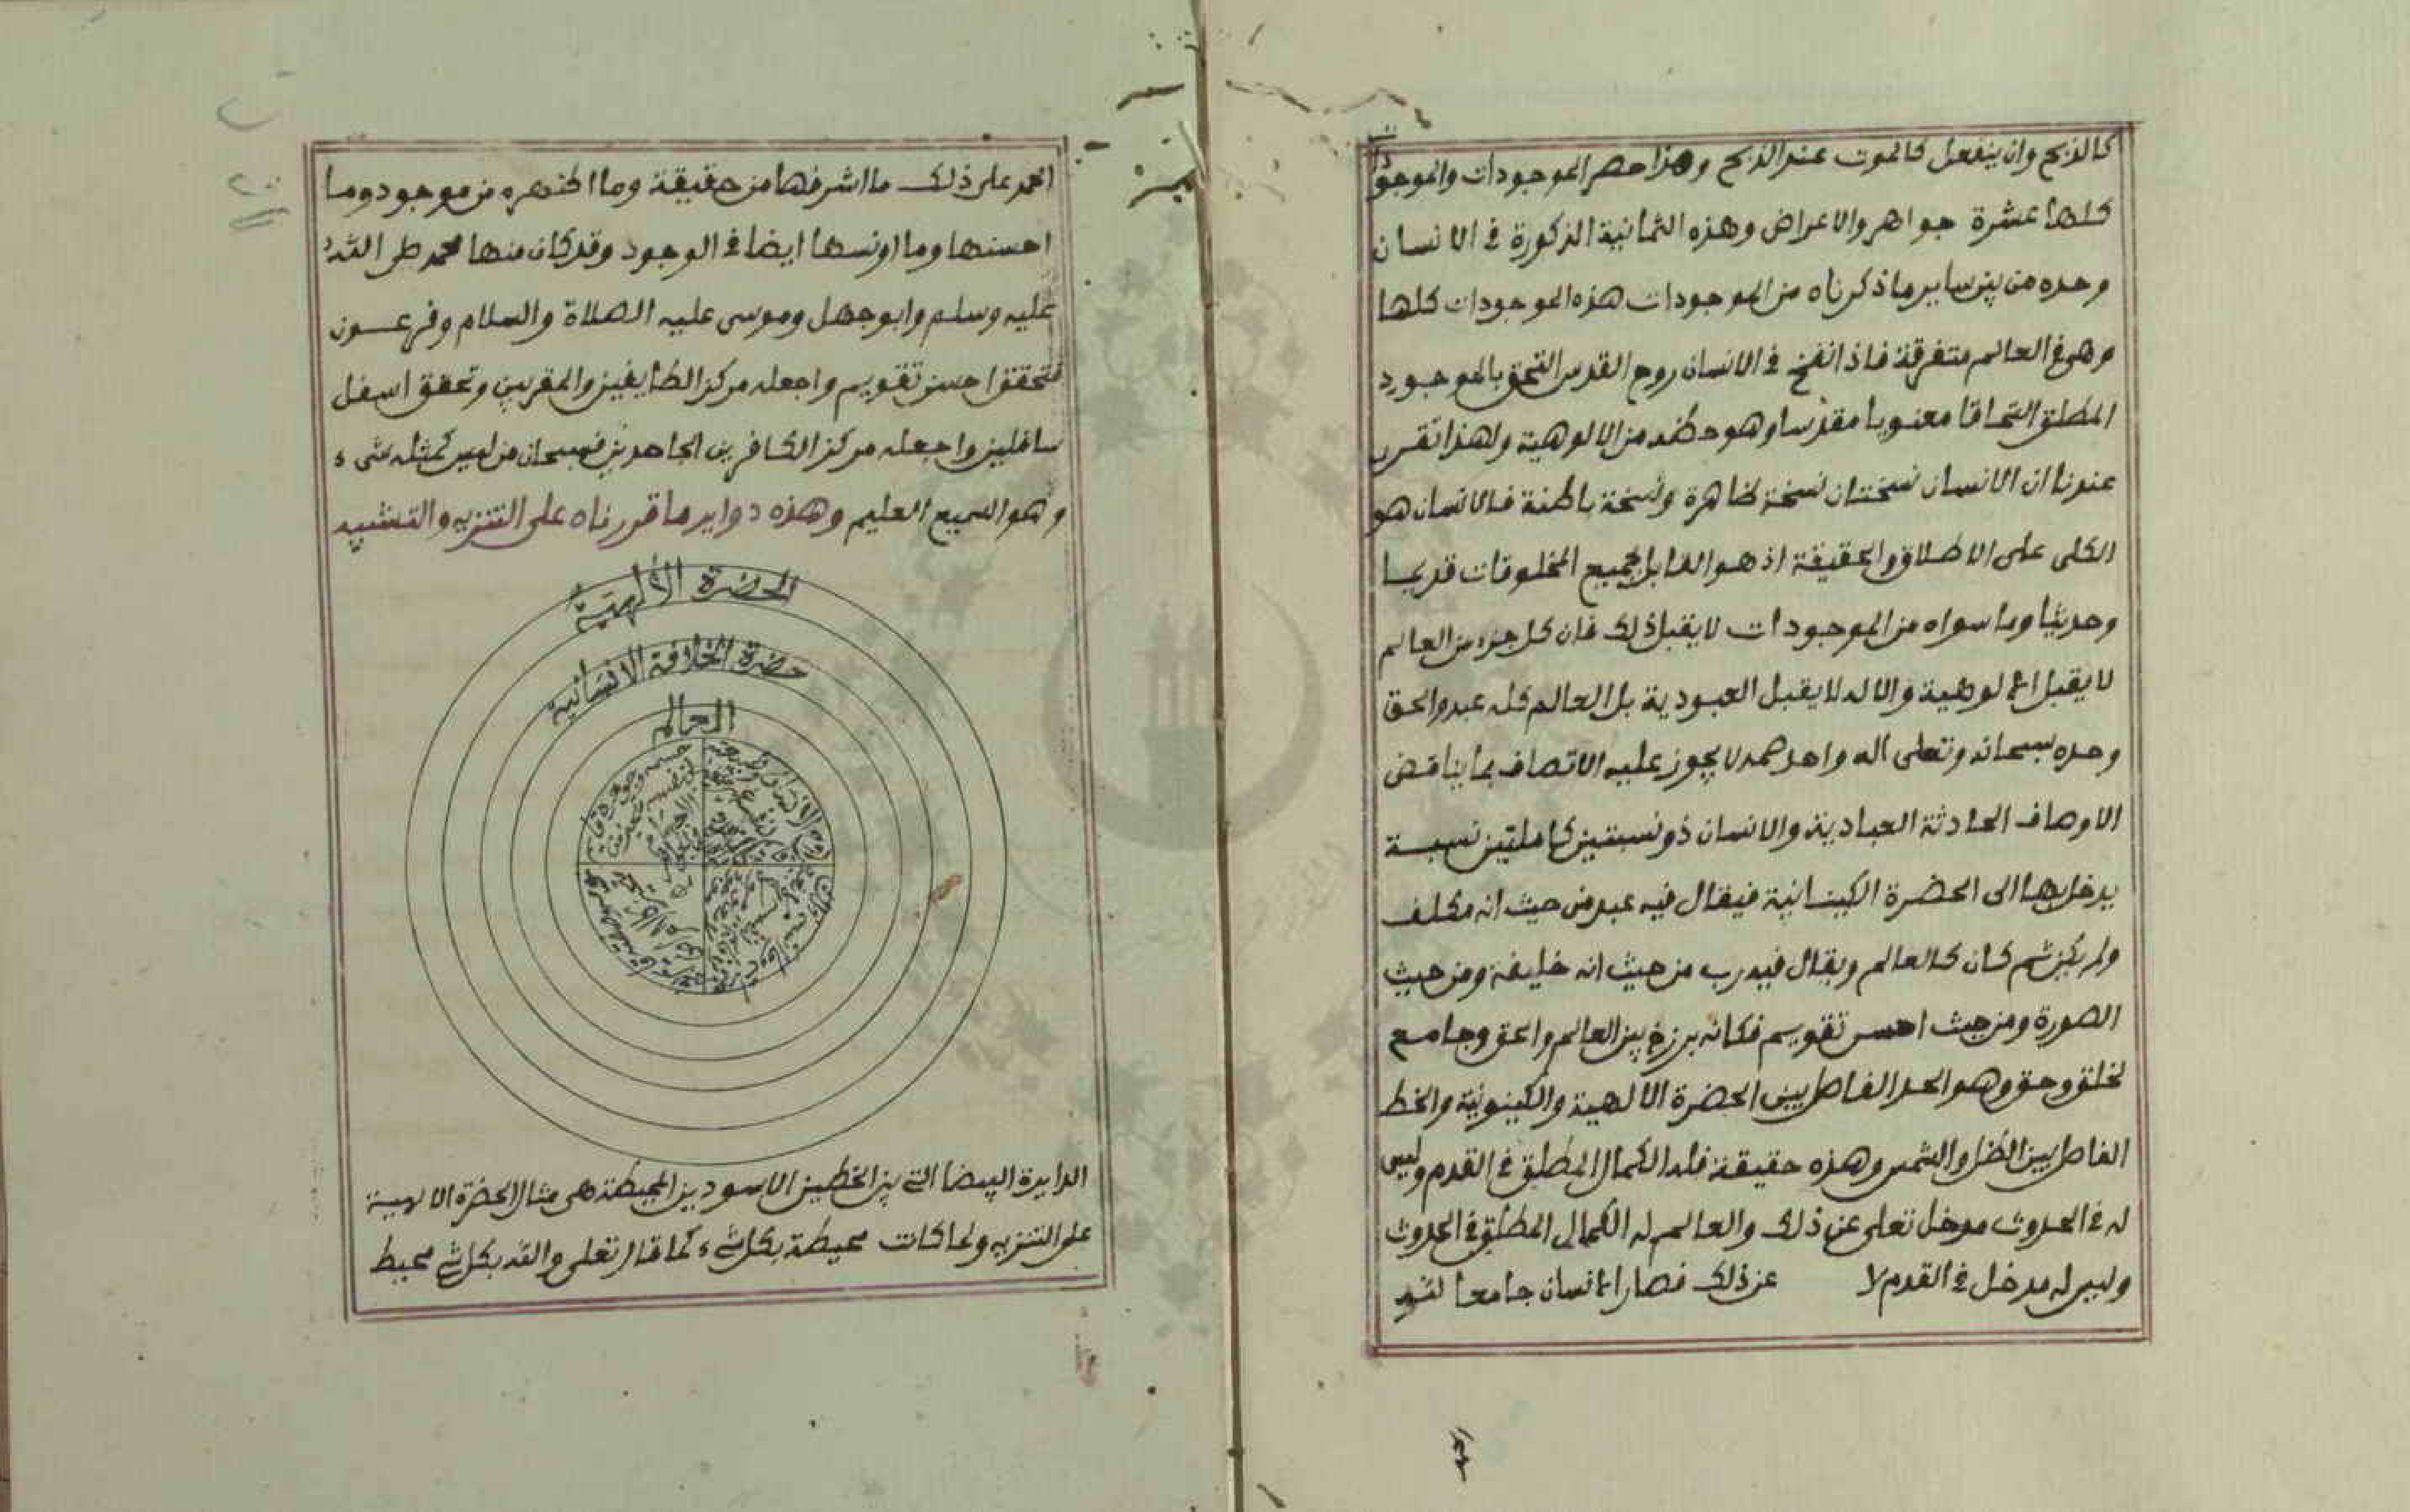 كالذبح وان ينفعل كالموت عند الذبح وهذا حصر الموجودات والموجودات
كلها عشرة جواهر والاعراض وهذه الثمانية المذكورة في الانسان
وحده من بين ساير ما ذكرناه من الموجودات هذه الموجودات كلها
وهي في العالم متفرقة فاذا نفخ في الانسان روح القدس التحق بالموجود
المطلق التحاقا معنويا مقدسا وهو حظه من الالوهية ولهذا تقرر
عندنا ان الانسان نسختان نسخة ظاهرة ونسخة باطنة فالانسان هو
الكلى على الاطلاق والحقيقة اذ هو القابل لجميع المخلوقات قديمها
وحديثها وما سواه من الموجودات لا يقبل ذلك فان كل جزء من العالم
لا يقبل الالوهية والاله لا يقبل العبودية بل العالم كله عبد والحق
وحده سبحانه وتعلى اله واحد صمد لا يجوز عليه الاتصاف بما يناقض
الاوصاف الحادثة العبادية والانسان ذو نسبتين كاملتين نسبة
يدخل بها الى الحضرة الكيسانية فيقال فيه عبد من حيث انه مكلف
ولم يكن ثم كان كالعالم ويقال فيه رب من حيث انه خليفة ومن حيث
الصورة ومن حيث احسن تقويم فكانه برزخ بين العالم والحق وجامع
لخلق وحق وهو الحد الفاصل بين الحضرة الالهية والكينونية والخط
الفاصل بين الظل والشمس وهذه حقيقة فله الكمال المطلق في القدم وليس
له في الحدوث مدخل تعلى عن ذلك والعالم له الكمال المطلق في الحدوث
وليس له مدخل في القدم لا عن ذلك فصار الانسان جامعا لله
الحمد على ذلك ما اشرفها من حقيقة وما اطهره من موجود وما
احسنها وما اونسها ايضا في الوجود وقد كان منها محمد صلى الله
عليه وسلم وابو جهل وموسى عليه الصلاة والسلام وفرعون
فتحقق احسن تقويم واجعله مركز الطايعين والمقربين وتحقق اسفل
سافلين واجعله مركز الكافرين الجاحدين فسبحان من ليس كمثله شىء
وهو السميع العليم وهذه دواير ما قررناه على التنزيه والتشبيه
الحضرة الألهية
حضرة الخلافة الانسانية
العالم
الدايرة البيضا التي بين الخطين الاسودين المحيطة هي مثال الحضرة الالهية
على التنزيه ولما كانت محيطة بكل شىء كما قال تعلى والله بكل شي محيط